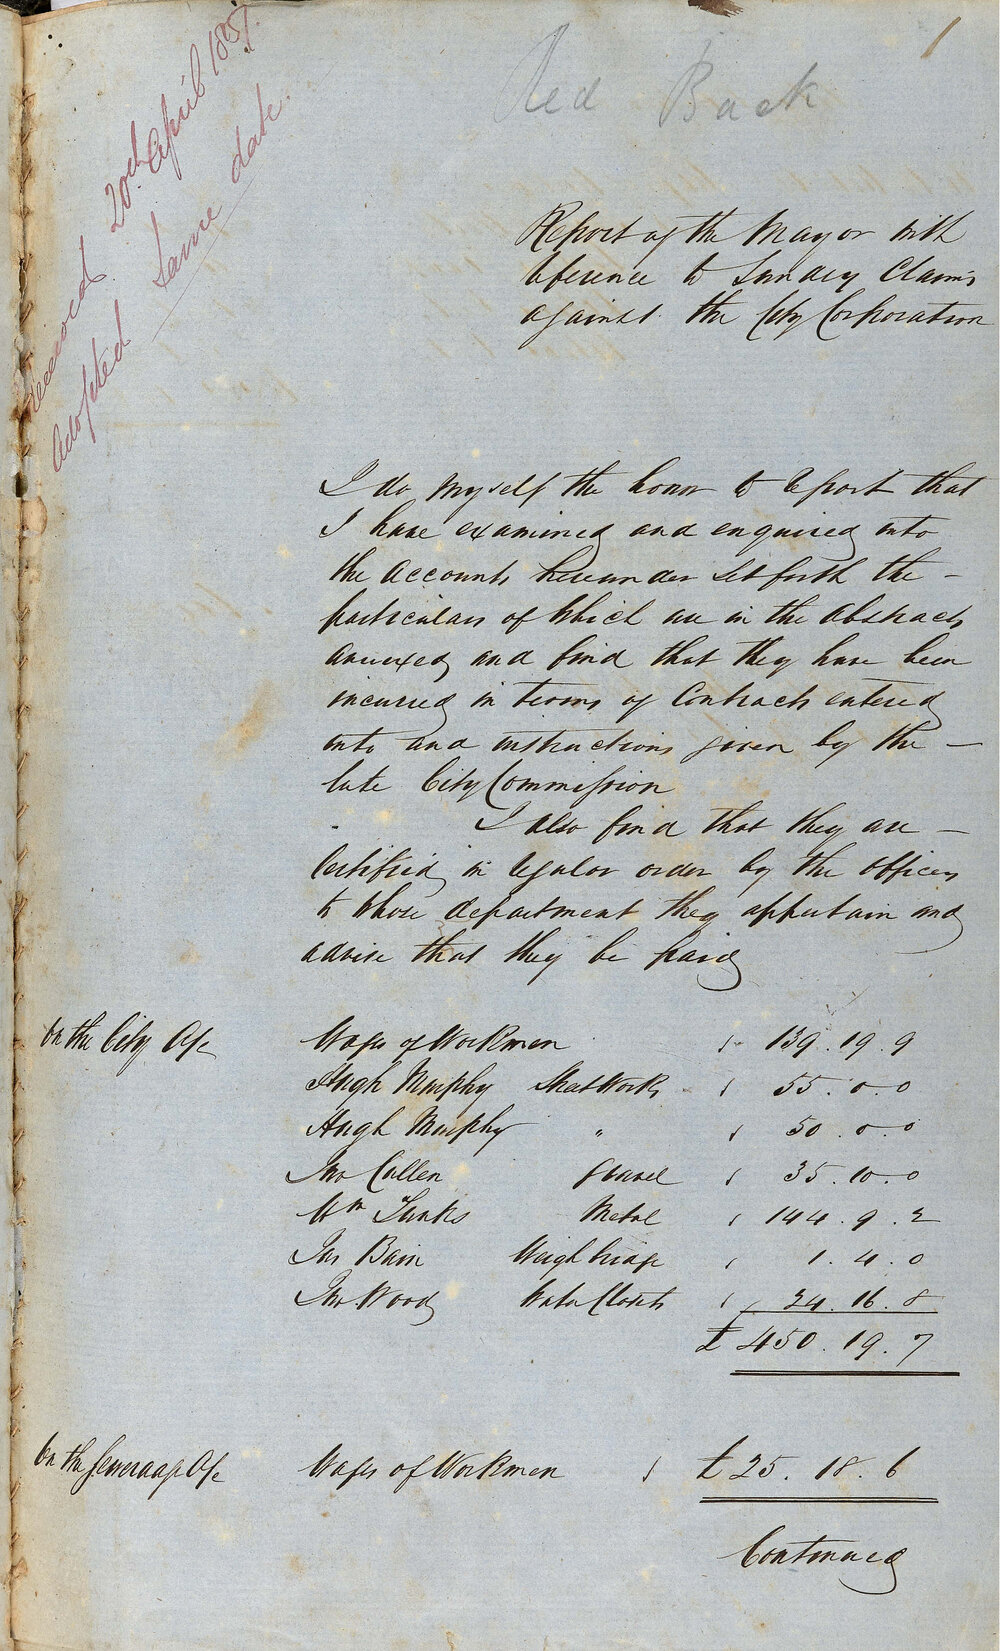 1
Red Back
Received 20th April 1857.
Adopted Same date.
Report of the Mayor with
reference to Sundry Claims
against the City Corporation
I do myself the honor to report that
I have examined and enquired into
the Accounts hereunder set forth the –
particulars of which are in the Abstracts
annexed and find that they have been
incurred in terms of Contracts entered
into and instructions given by the –
late City Commission
I also find that they are –
Certified in regular order by the Officers
to whose department they appertain and
advise that they be paid
On the City A/c
Wages of Workmen 139. 19. 9
Hugh Murphy Streetwork 55. 0. 0
Hugh Murphy " 50. 0. 0
Jno Cullen Gravel 35. 10. 0
Wm Tunks Metal 144. 9. 2
Jas Bain Weighbridge 1. 4. 0
Jno Wood Water Closets 24. 16. 8
£ 450. 19. 7
On the Sewerage A/c
Wages of Workmen £ 25. 18. 6
Continued